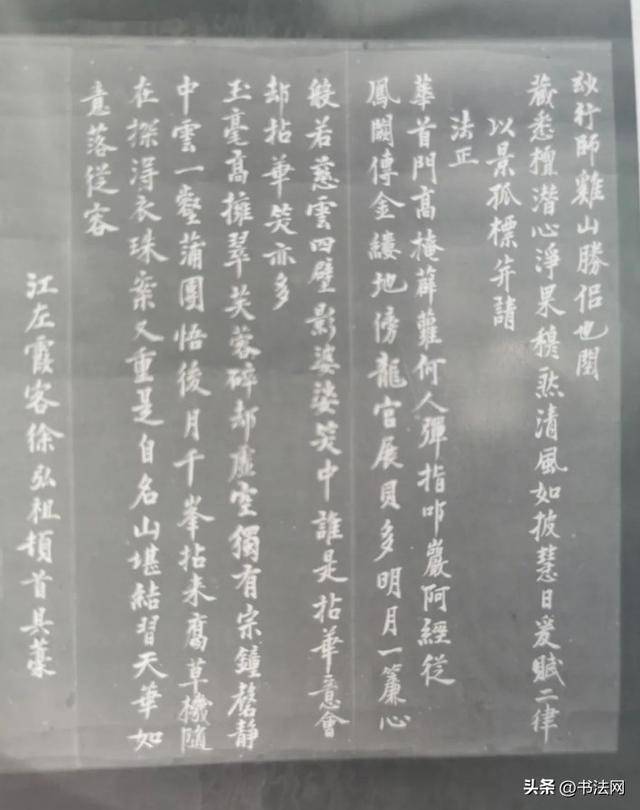 妙行師雞山勝侶也閱
藏悉檀潛心淨果穆然清風如披慧日爰賦二律
以景孤標并請
法正
華首門高掩薜蘿何人彈指叩巖阿經從
鳳闕傳金縷地傍龍宮展貝多明月一簾心
般若慈雲四壁影婆娑笑中誰是拈華意會
却拈華笑亦多
玉毫高擁翠芙蓉碎却虛空獨有宗鐘磬靜
中雲一壑蒲團悟後月千峯拈来腐草機隨
在探淂衣珠案又重是自名山堪結習天華如
意落從容
江左霞客徐弘祖頓首具藁
头条 @书法网